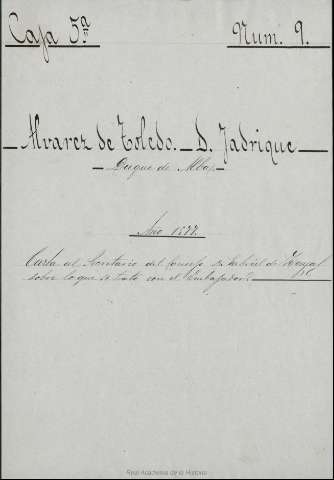 Caja 5ª
Num. 9.
Alvarez de Toledo. D. Fadrique
Duque de Alba
Año 1577.
Carta al Secretario del Consejo Sr. Gabriel de Zayas
sobre lo que se trato con el Embajador
Real Academia de la Historia